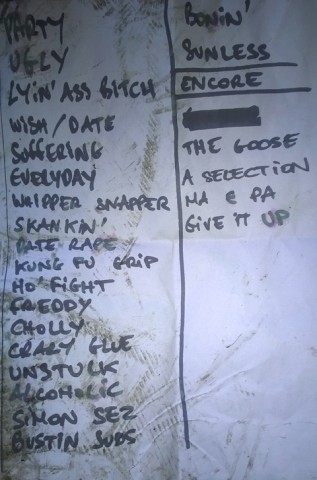 PARTY
UGLY
LYIN' ASS BITCH
WISH / DATE
SUFFERING
EVERYDAY
WHIPPER SNAPPER
SKANKIN'
DATE RAPE
KUNG FU GRIP
HO' FIGHT
FREDDY
CHOLLY
CRAZY GLUE
UNSTUCK
ALCOHOLIC
SIMON SEZ
BUSTIN SUDS
BONIN'
SUNLESS
ENCORE
THE GOOSE
A SELECTION
MA & PA
GIVE IT UP